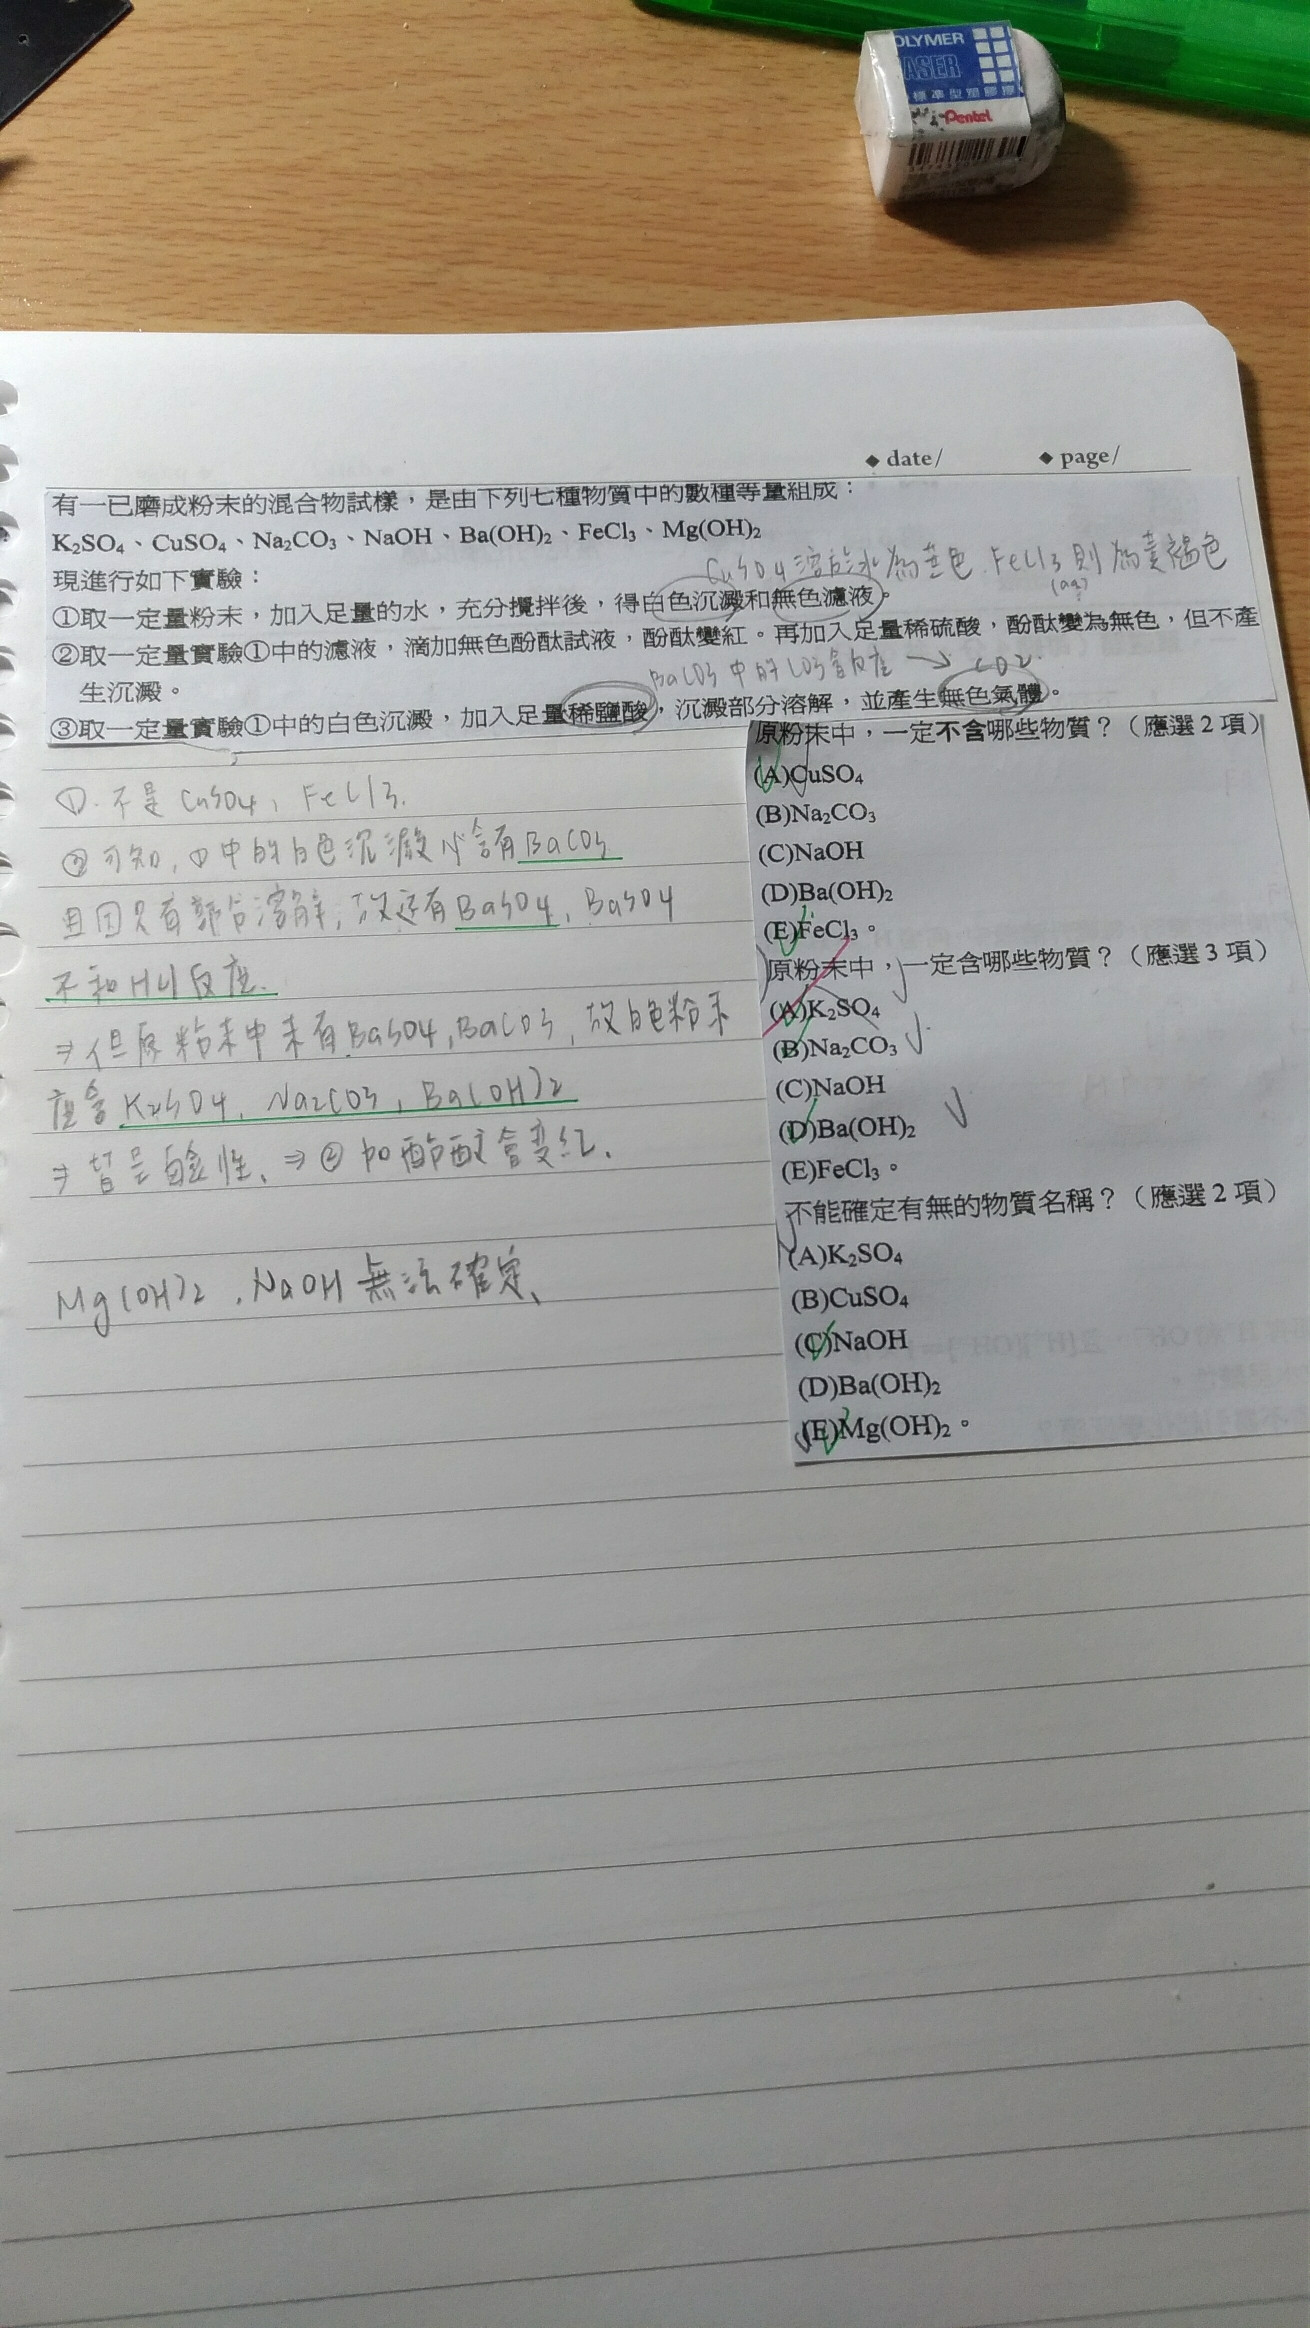 OLYMER
ASER
標準型塑膠擦
Pentel
◆ date/ ◆ page/
有一已磨成粉末的混合物試樣，是由下列七種物質中的數種等量組成：
K₂SO₄、CuSO₄、Na₂CO₃、NaOH、Ba(OH)₂、FeCl₃、Mg(OH)₂
CuSO4溶於水為藍色, FeCl3則為黃褐色
(aq)
現進行如下實驗：
①取一定量粉末，加入足量的水，充分攪拌後，得白色沉澱和無色濾液。
②取一定量實驗①中的濾液，滴加無色酚酞試液，酚酞變紅。再加入足量稀硫酸，酚酞變為無色，但不產
生沉澱。
BaCO3中的CO3會反應 → CO2.
③取一定量實驗①中的白色沉澱，加入足量稀鹽酸，沉澱部分溶解，並產生無色氣體。
①. 不是CuSO4, FeCl3.
③可知,①中的白色沉澱必含有BaCO3
且因只有部分溶解, 故還有BaSO4, BaSO4
不和HCl反應.
⇒但原粉末中未有BaSO4, BaCO3, 故白色粉末
應含K2SO4, Na2CO3, Ba(OH)2
⇒皆呈鹼性、⇒②加酚酞會變紅、
Mg(OH)2, NaOH無法確定、
原粉末中，一定不含哪些物質？（應選2項）
(A)CuSO₄
(B)Na₂CO₃
(C)NaOH
(D)Ba(OH)₂
(E)FeCl₃。
原粉末中，一定含哪些物質？（應選3項）
(A)K₂SO₄
(B)Na₂CO₃
(C)NaOH
(D)Ba(OH)₂
(E)FeCl₃。
不能確定有無的物質名稱？（應選2項）
(A)K₂SO₄
(B)CuSO₄
(C)NaOH
(D)Ba(OH)₂
(E)Mg(OH)₂。